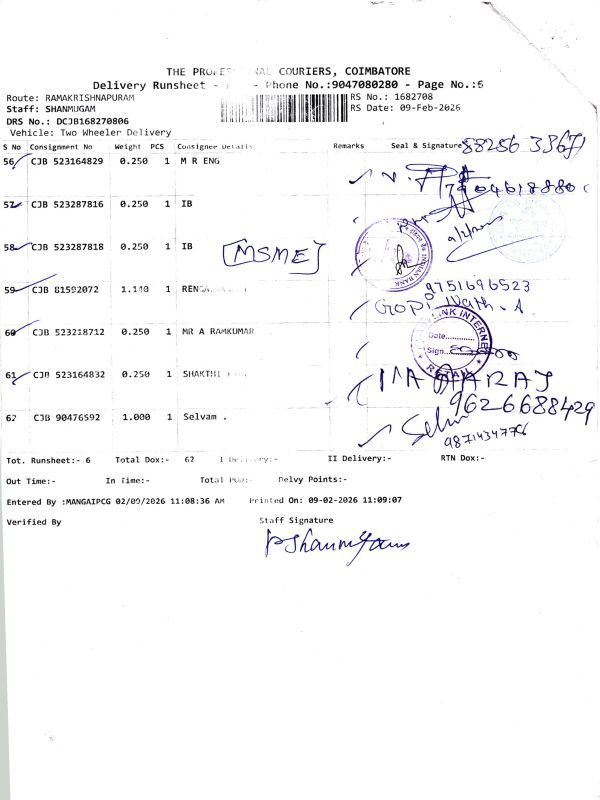 THE PROFESSIONAL COURIERS, COIMBATORE
Delivery Runsheet - Phone No.:9047080280 - Page No.:6
Route: RAMAKRISHNAPURAM
RS No.: 1682708
Staff: SHANMUGAM
RS Date: 09-Feb-2026
DRS No.: DCJB168270806
Vehicle: Two Wheeler Delivery
S No Consignment No Weight PCS Consignee Details Remarks Seal & Signature 88256 33671
56 CJB 523164829 0.250 1 M R ENG
57 CJB 523287816 0.250 1 IB
9/2/2026
58 CJB 523287818 0.250 1 IB [MSME]
INDIAN BANK
59 CJB 81592072 1.140 1 9751696523
Gopi Nath. A
60 CJB 523218712 0.250 1 MR A RAMKUMAR
LINK INTERNET
Date............
Sign............
RETAIL
61 CJB 523164832 0.250 1 SHAKTHI
9626688429
62 CJB 90476592 1.000 1 Selvam .
9871434776
Tot. Runsheet:- 6 Total Dox:- 62 I Delivery:- II Delivery:- RTN Dox:-
Out Time:- In Time:- Total POD:- Delvy Points:-
Entered By :MANGAIPCG 02/09/2026 11:08:36 AM Printed On: 09-02-2026 11:09:07
Verified By Staff Signature
P Shanmugam